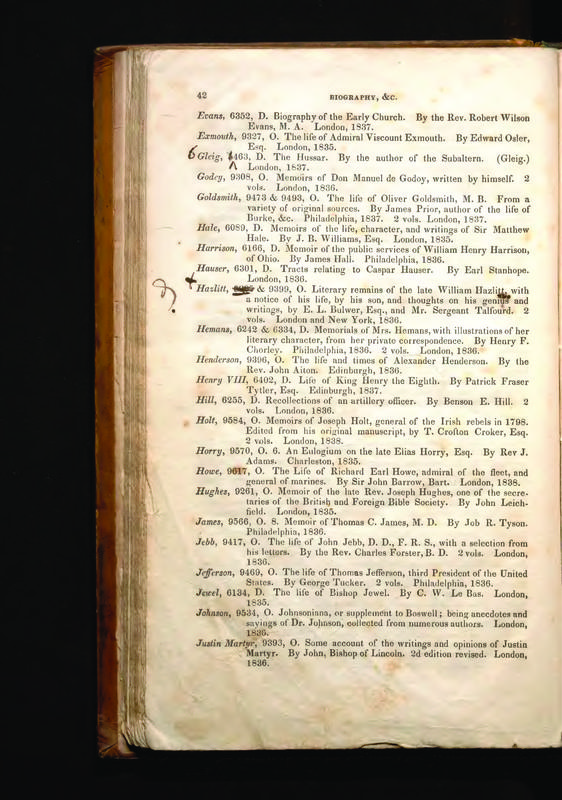 42
BIOGRAPHY, &C.
Evans, 6352, D. Biography of the Early Church. By the Rev. Robert Wilson
Evans, M. A. London, 1837.
Exmouth, 9327, O. The life of Admiral Viscount Exmouth. By Edward Osler,
Esq. London, 1835.
6 Gleig, 463, D. The Hussar. By the author of the Subaltern. (Gleig.)
London, 1837.
Godoy, 9308, O. Memoirs of Don Manuel de Godoy, written by himself. 2
vols. London, 1836.
Goldsmith, 9473 & 9493, O. The life of Oliver Goldsmith, M. B. From a
variety of original sources. By James Prior, author of the life of
Burke, &c. Philadelphia, 1837. 2 vols. London, 1837.
Hale, 6089, D. Memoirs of the life, character, and writings of Sir Matthew
Hale. By J. B. Williams, Esq. London, 1835.
Harrison, 6166, D. Memoir of the public services of William Henry Harrison,
of Ohio. By James Hall. Philadelphia, 1836.
Hauser, 6301, D. Tracts relating to Caspar Hauser. By Earl Stanhope.
London, 1836.
Hazlitt, & 9399, O. Literary remains of the late William Hazlitt, with
a notice of his life, by his son, and thoughts on his genius and
writings, by E. L. Bulwer, Esq., and Mr. Sergeant Talfourd. 2
vols. London and New York, 1836.
Hemans, 6242 & 6334, D. Memorials of Mrs. Hemans, with illustrations of her
literary character, from her private correspondence. By Henry F.
Chorley. Philadelphia, 1836. 2 vols. London, 1836.
Henderson, 9396, O. The life and times of Alexander Henderson. By the
Rev. John Aiton. Edinburgh, 1836.
Henry VIII, 6402, D. Life of King Henry the Eighth. By Patrick Fraser
Tytler, Esq. Edinburgh, 1837.
Hill, 6255, D. Recollections of an artillery officer. By Benson E. Hill. 2
vols. London, 1836.
Holt, 9584, O. Memoirs of Joseph Holt, general of the Irish rebels in 1798.
Edited from his original manuscript, by T. Crofton Croker, Esq.
2 vols. London, 1838.
Horry, 9570, O. 6. An Eulogium on the late Elias Horry, Esq. By Rev J.
Adams. Charleston, 1835.
Howe, 9617, O. The Life of Richard Earl Howe, admiral of the fleet, and
general of marines. By Sir John Barrow, Bart. London, 1838.
Hughes, 9261, O. Memoir of the late Rev. Joseph Hughes, one of the secre-
taries of the British and Foreign Bible Society. By John Leich-
field. London, 1835.
James, 9566, O. 8. Memoir of Thomas C. James, M. D. By Job R. Tyson.
Philadelphia, 1836.
Jebb, 9417, O. The life of John Jebb, D. D., F. R. S., with a selection from
his letters. By the Rev. Charles Forster, B. D. 2 vols. London,
1836.
Jefferson, 9469, O. The life of Thomas Jefferson, third President of the United
States. By George Tucker. 2 vols. Philadelphia, 1836.
Jewel, 6134, D. The life of Bishop Jewel. By C. W. Le Bas. London,
1835.
Johnson, 9534, O. Johnsoniana, or supplement to Boswell; being anecdotes and
sayings of Dr. Johnson, collected from numerous authors. London,
1836.
Justin Martyr, 9393, O. Some account of the writings and opinions of Justin
Martyr. By John, Bishop of Lincoln. 2d edition revised. London,
1836.